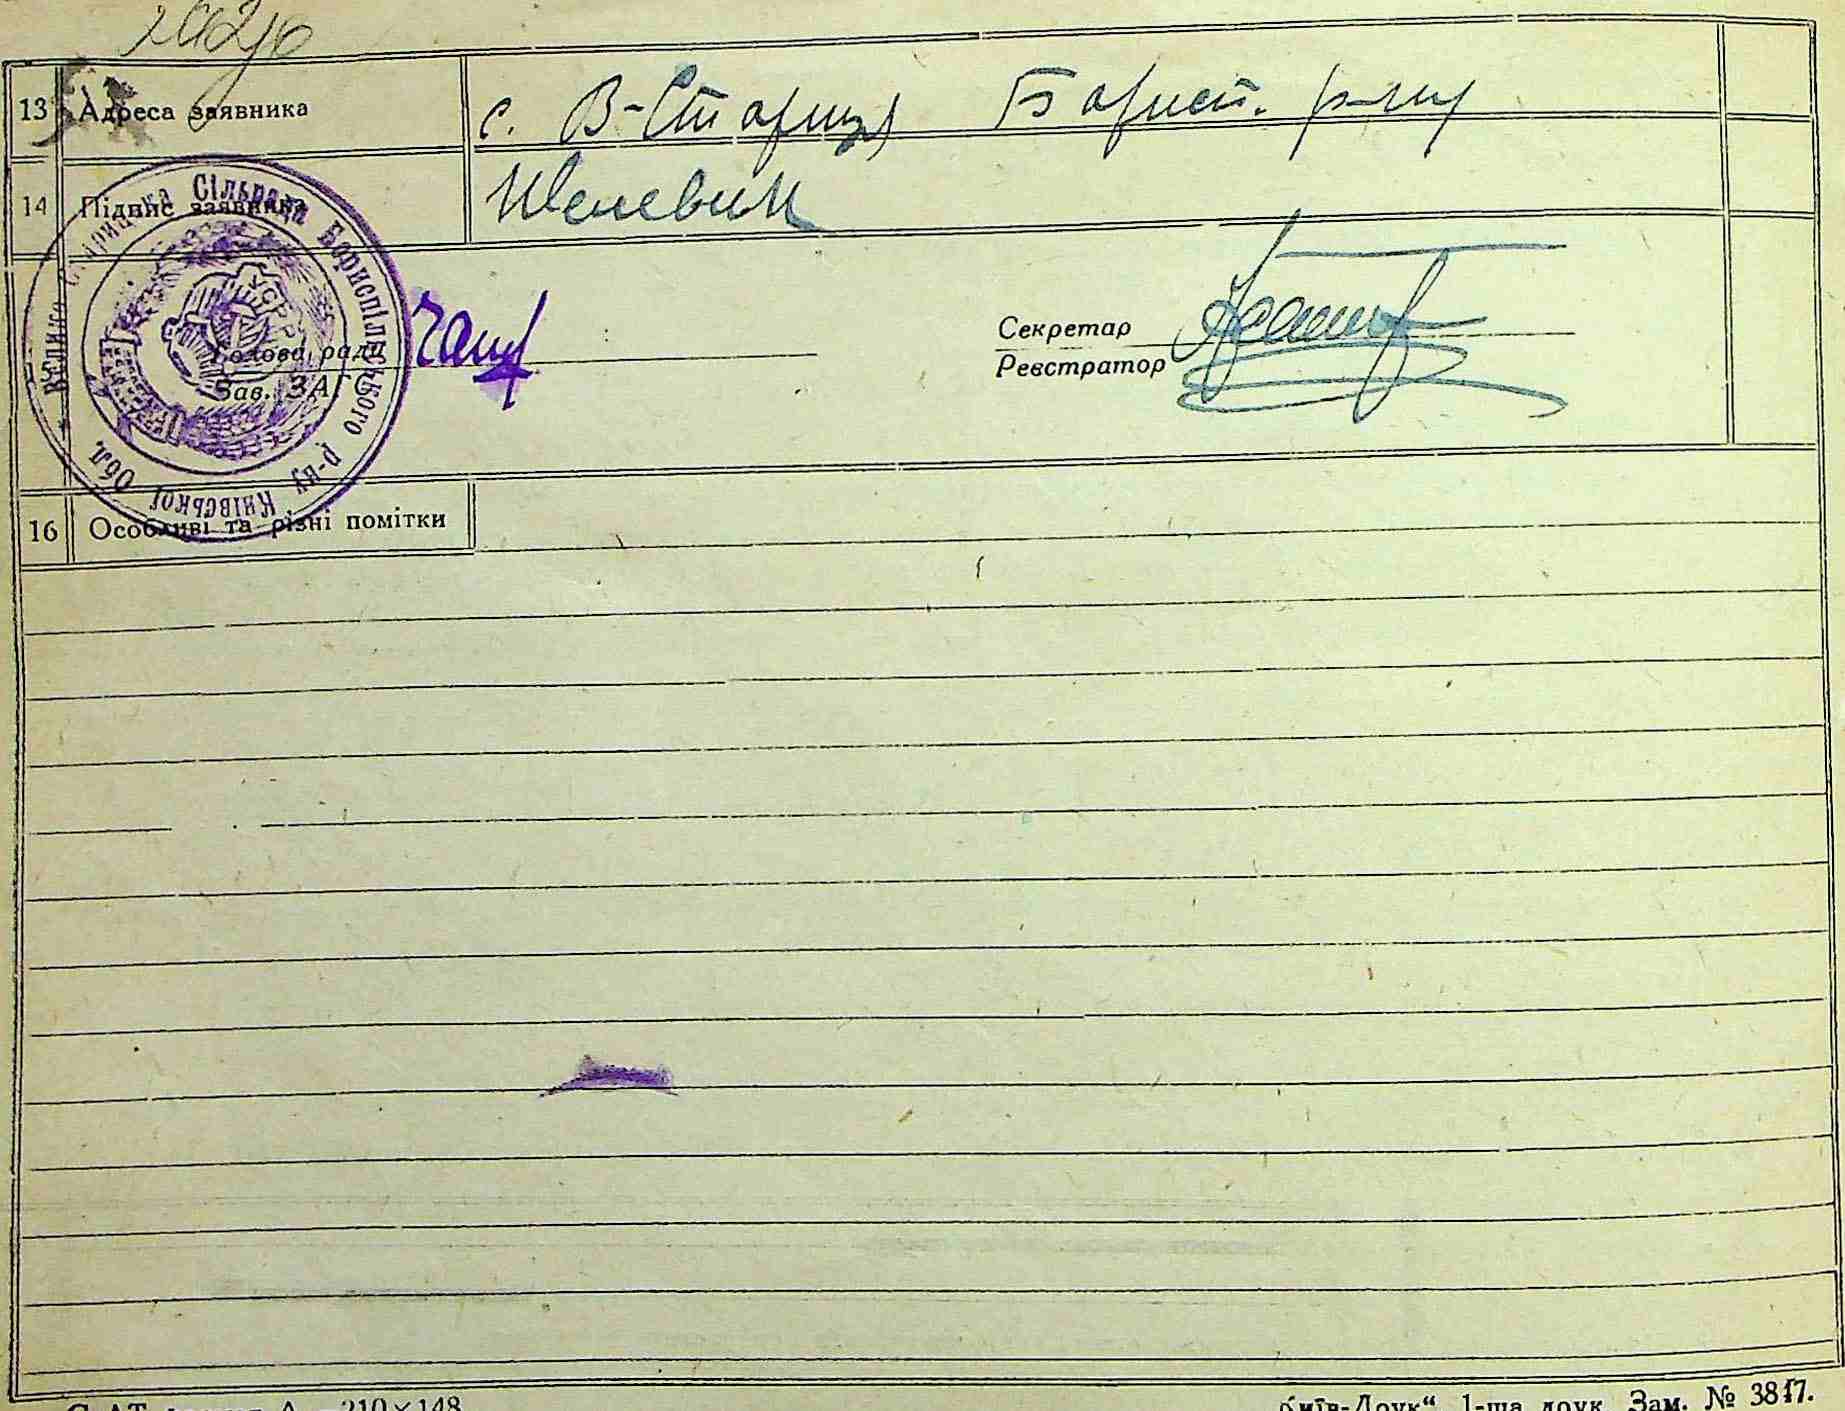 13 Адреса заявника с. В-Стариця Борисп. р-ну
14 Підпис заявника Шелевик
Велико Старицька Сільрада Бориспільського р-ну Київської Обл.
УСРР
Голова ради
Зав. ЗАГС
Секретар
Реєстратор
16 Особливі та різні помітки
210×148
Київ-Друк“ 1-ша друк. Зам. № 3817.